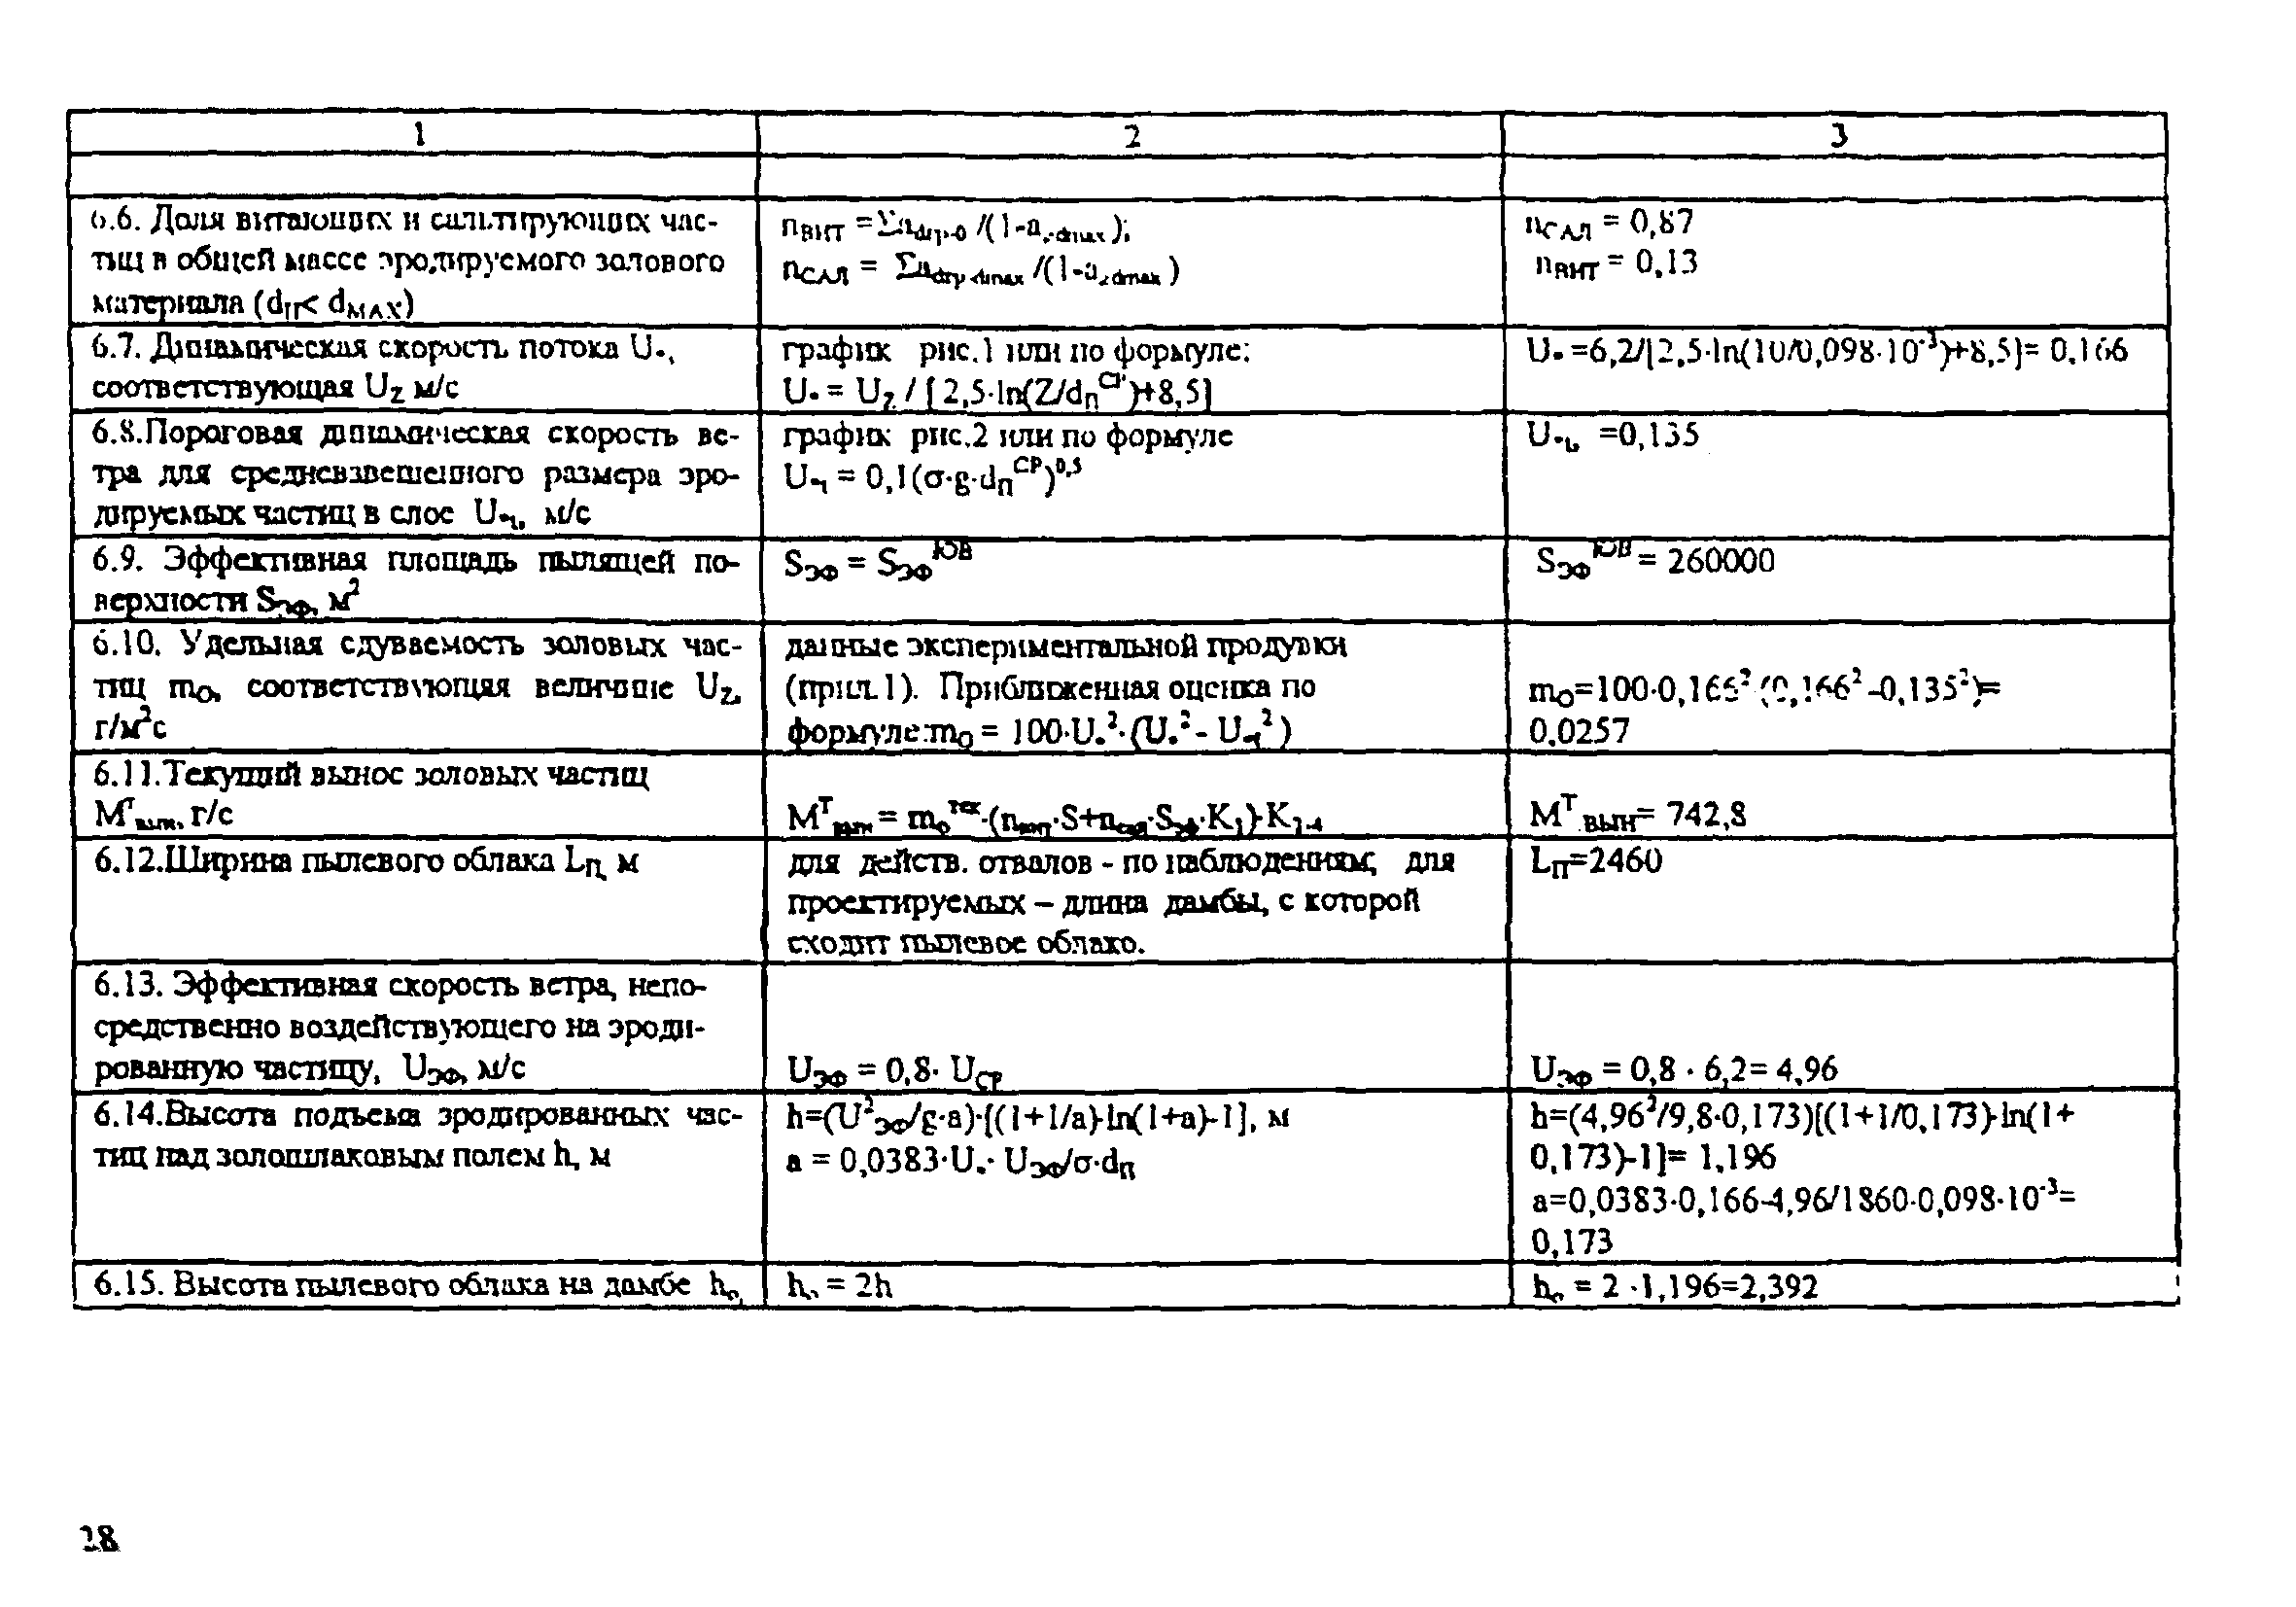 1 2 3
6.6. Доля витающих и сальтирующих час-
тиц в общей массе эродируемого золового
материала (dП< dМАХ)
nВИТ =
nСАЛ =
nСАЛ = 0,87
nВИТ = 0,13
6.7. Динамическая скорость потока U*,
соответствующая UZ м/с
график рис.1 или по формуле:
U* = UZ / [ 2,5·ln(Z/dПСР)+8,5]
U* =6,2/[2,5·ln(10/0,098·10⁻³)+8,5]= 0,166
6.8.Пороговая динамическая скорость ве-
тра для средневзвешенного размера эро-
дируемых частиц в слое U*t, м/с
график рис.2 или по формуле
U*t = 0,1(σ·g·dПСР)0,5
U*t, =0,135
6.9. Эффективная площадь пылящей по-
верхности SЭФ, м²
SЭФ = SЭФЮВ
SЭФЮВ = 260000
6.10. Удельная сдуваемость золовых час-
тиц mО, соответствующая величине UZ,
г/м²с
данные экспериментальной продувки
(прил.1). Приближенная оценка по
формуле:mО = 100·U*²·(U*²- U*t²)
mО=100·0,166²·(0,166²-0,135²)=
0,0257
6.11.Текущий вынос золовых частиц
МТвын, г/с
МТвын = mотек·(nвит·S+nсал·Sэф·К1)·К1-4
МТВЫН= 742,8
6.12.Ширина пылевого облака LП, м
для действ. отвалов - по наблюдениям; для
проектируемых – длина дамбы, с которой
сходит пылевое облако.
LП=2460
6.13. Эффективная скорость ветра, непо-
средственно воздействующего на эроди-
рованную частицу, UЭФ, м/с
UЭФ = 0,8· UСР
UЭФ = 0,8 · 6,2= 4,96
6.14.Высота подъема эродированных час-
тиц над золошлаковым полем h, м
h=(U²ЭФ/g·a)·[(1+1/a)·ln(1+a)-1], м
a = 0,0383·U*· UЭФ/σ·dП
h=(4,96²/9,8·0,173)[(1+1/0,173)·ln(1+
0,173)-1]= 1,196
a=0,0383·0,166·4,96/1860·0,098·10⁻³=
0,173
6.15. Высота пылевого облака на дамбе hо,
hо = 2h
hо = 2 ·1,196=2,392